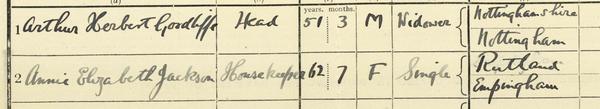 (a)
years. months.
1 Arthur Herbert Goodliffe Head 51 3 M Widower Nottinghamshire
Nottingham
2 Annie Elizabeth Jackson Housekeeper 62 7 F Single Rutland
Empingham